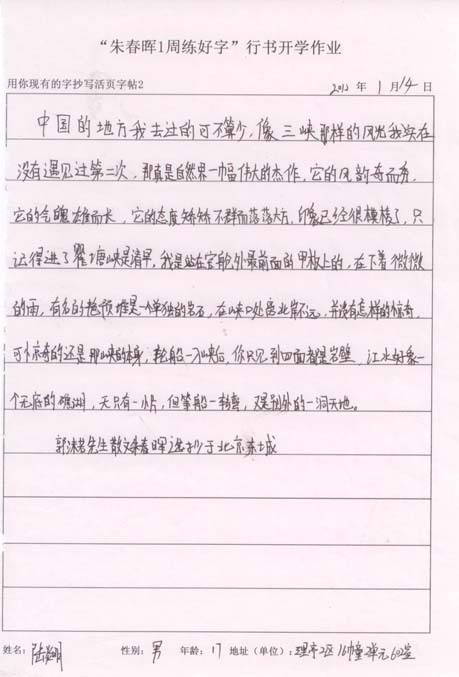 “朱春晖1周练好字”行书开学作业
用你现有的字抄写活页字帖2 2012 年 1 月 14 日
中国的地方我去过的可不算少,像三峡那样的风光我实在
没有遇见过第二次,那真是自然界一幅伟大的杰作,它的风韵奇而秀,
它的气魄雄而长,它的态度矫矫不群而落落大方,印像已经很模棱了,只
记得进了瞿塘峡是清早,我是站在官舱外最前面的甲板上的,在下着微微
的雨,有名的滟滪堆是一个单独的岩石,在峡口处离北岸不远,并没有怎样的惊奇,
可惊奇的还是那峡的本身,轮船一刁峡后,你只见到四面都是岩壁,江水好像一
个无底的礁湖,天只有一小片,但等船一转弯,又是别外的一洞天地。
郭沫若先生散文朱春晖选抄于北京东城
姓名: 性别: 男 年龄: 17 地址(单位): 2区16幢2单元602室